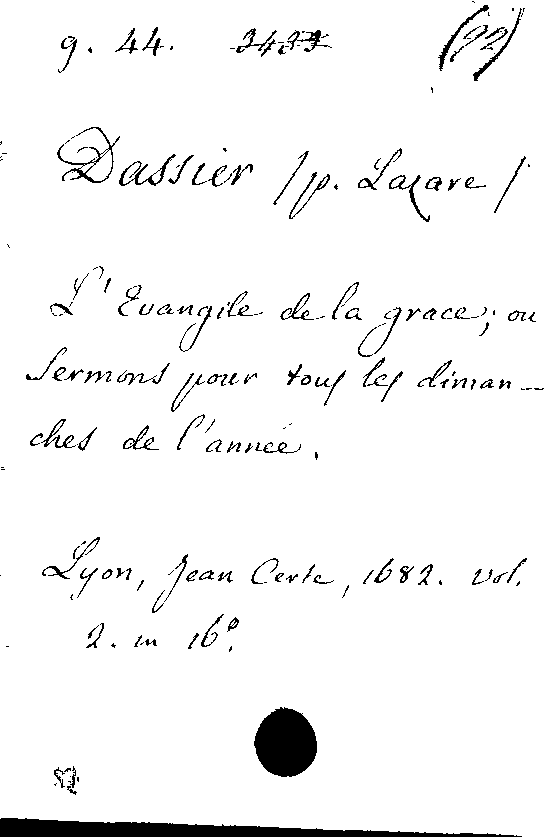 g. 44. 3433 (92)
Dassier /p. Lazare/
L'Evangile de la grace; ou
Sermons pour tous les diman-
ches de l'année.
Lyon, Jean Certe, 1682. vol.
2. in 16°.